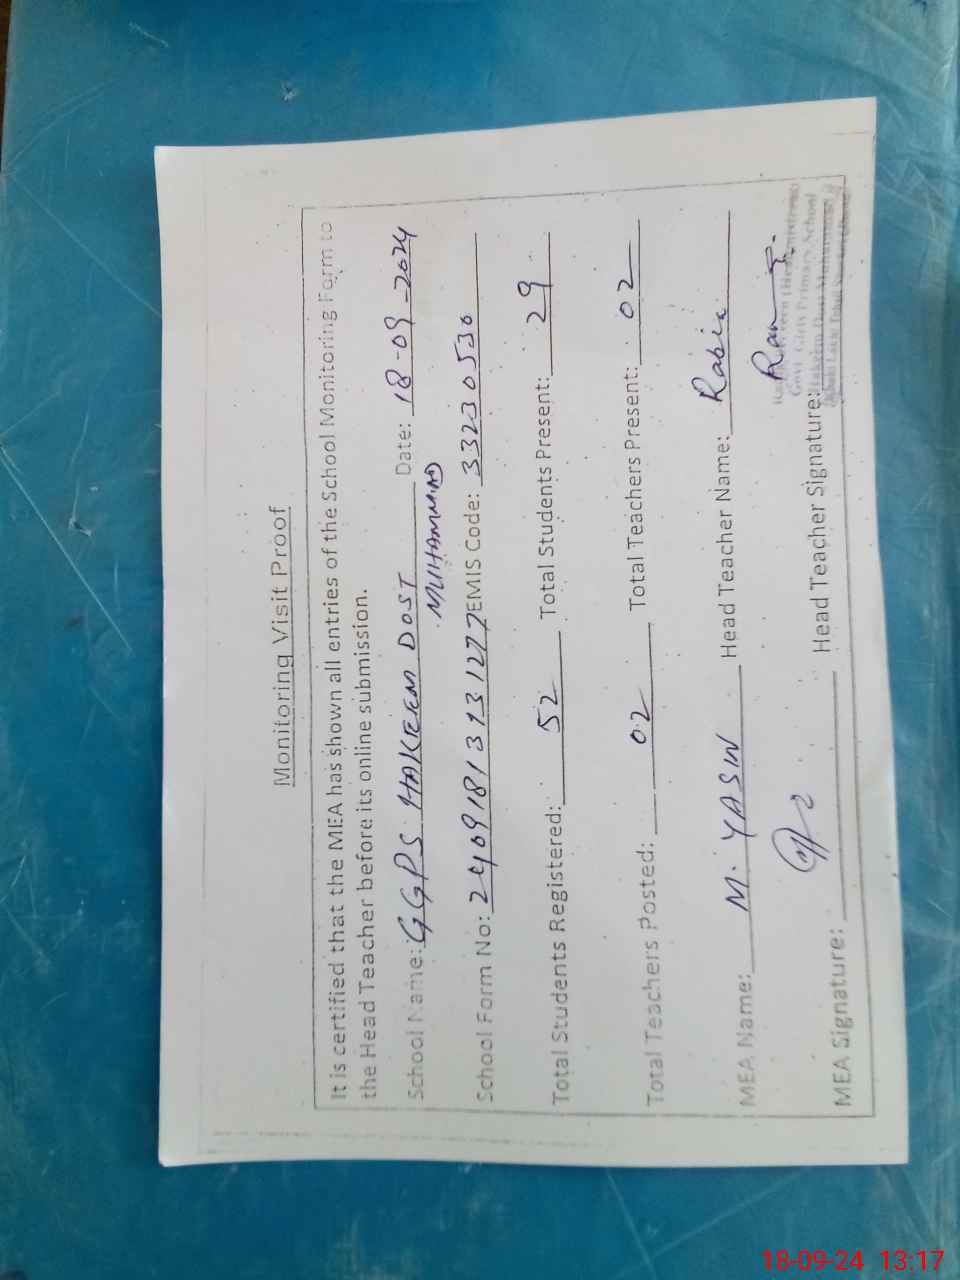 Monitoring Visit Proof
It is certified that the MEA has shown all entries of the School Monitoring Form to
the Head Teacher before its online submission.
School Name: GGPS HAKEEM DOST MUHAMMAD Date: 18-09-2024
School Form No: EMIS Code: 33230530
Total Students Registered: 52 Total Students Present: 29
Total Teachers Posted: 02 Total Teachers Present: 02
MEA Name: M. YASIN Head Teacher Name: Rabia
MEA Signature: Head Teacher Signature:
Govt. Girls Primary School
18-09-24 13:17